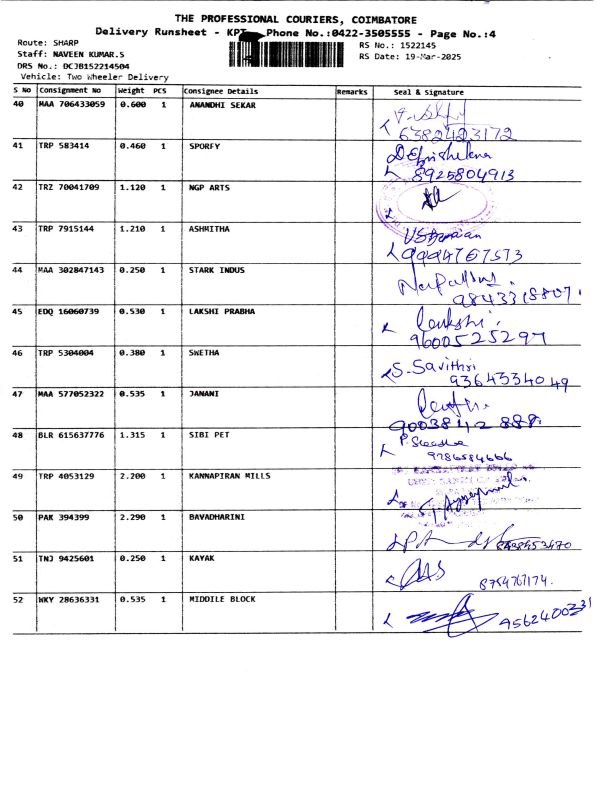 THE PROFESSIONAL COURIERS, COIMBATORE
Delivery Runsheet - KPT Phone No.:0422-3505555 - Page No.:4
Route: SHARP
Staff: NAVEEN KUMAR.S
DRS No.: DCJB152214504
Vehicle: Two Wheeler Delivery
RS No.: 1522145
RS Date: 19-Mar-2025
S No Consignment No Weight PCS Consignee Details Remarks Seal & Signature
40 MAA 706433059 0.600 1 ANANDHI SEKAR
6382423172
41 TRP 583414 0.460 1 SPORFY
8925804913
42 TRZ 70041709 1.120 1 NGP ARTS
43 TRP 7915144 1.210 1 ASHMITHA
9994767573
44 MAA 302847143 0.250 1 STARK INDUS
9843318807
45 EDQ 16060739 0.530 1 LAKSHI PRABHA
9600525297
46 TRP 5304004 0.380 1 SWETHA
S. Savithri
9364334049
47 MAA 577052322 0.535 1 JANANI
9003842888
48 BLR 615637776 1.315 1 SIBI PET
9786584666
49 TRP 4053129 2.200 1 KANNAPIRAN MILLS
50 PAK 394399 2.290 1 BAVADHARINI
51 TNJ 9425601 0.250 1 KAYAK
8754767174.
52 WKY 28636331 0.535 1 MIDDILE BLOCK
9562400331